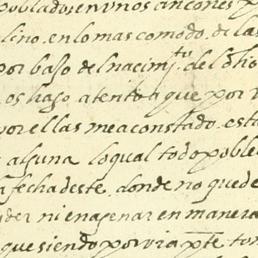 poblados en vnos ancones p
lino, en lo mas comodo, de las
por bajo de el nacimito. del ôho
os hago, atento â que por
por ellas me a constado, esta
alguna lo qual todo poble
a fecha deste, donde no quede
der ni enagenar en manera
que siendo por via pte. to